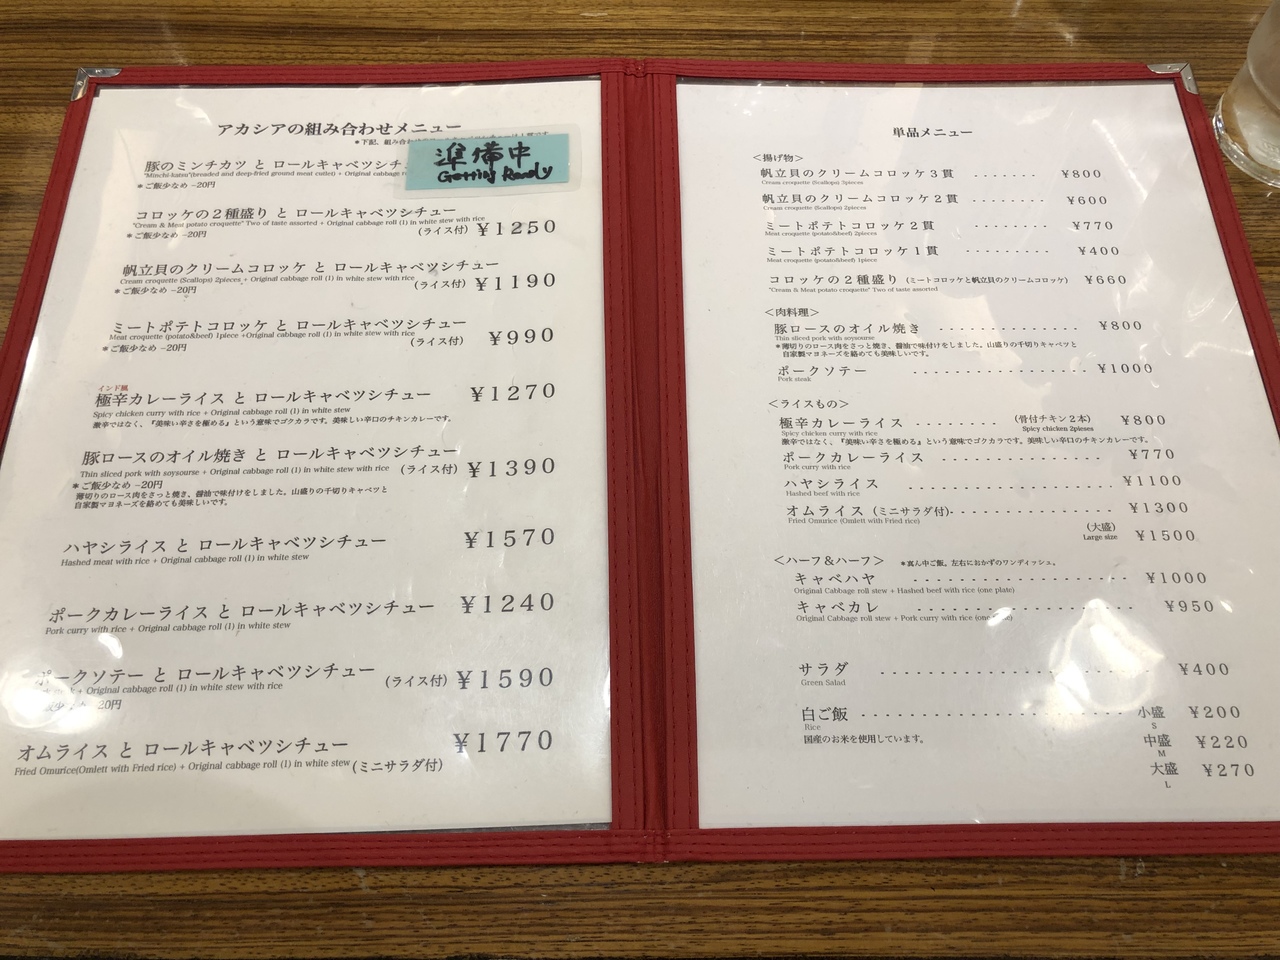 アカシアの組み合わせメニュー
準備中
Getting Ready
豚のミンチカツ と ロールキャベツシチ
"Minchi-katsu"(breaded and deep-fried ground meat cutlet) + Original cabbage
＊ご飯少なめ −20円
コロッケの２種盛り と ロールキャベツシチュー
"Cream & Meat potato croquette" Two of taste assorted + Original cabbage roll (1) in white stew with rice
＊ご飯少なめ −20円
(ライス付) ¥1250
帆立貝のクリームコロッケ と ロールキャベツシチュー
Cream croquette (Scallops) 2pieces + Original cabbage roll (1) in white stew with rice
＊ご飯少なめ −20円
(ライス付) ¥1190
ミートポテトコロッケ と ロールキャベツシチュー
Meat croquette (potato&beef) 1piece +Original cabbage roll (1) in white stew with rice
＊ご飯少なめ −20円
(ライス付) ¥990
インド風
極辛カレーライス と ロールキャベツシチュー ¥1270
Spicy chicken curry with rice + Original cabbage roll (1) in white stew
激辛ではなく、『美味い辛さを極める』という意味でゴクカラです。美味しい辛口のチキンカレーです。
豚ロースのオイル焼き と ロールキャベツシチュー
Thin sliced pork with soysourse + Original cabbage roll (1) in white stew with rice (ライス付) ¥1390
＊ご飯少なめ −20円
薄切りのロース肉をさっと焼き、醤油で味付けをしました。山盛りの千切りキャベツと
自家製マヨネーズを絡めても美味しいです。
ハヤシライス と ロールキャベツシチュー ¥1570
Hashed meat with rice + Original cabbage roll (1) in white stew
ポークカレーライス と ロールキャベツシチュー ¥1240
Pork curry with rice + Original cabbage roll (1) in white stew
ポークソテー と ロールキャベツシチュー (ライス付) ¥1590
+ Original cabbage roll (1) in white stew with rice
20円
オムライス と ロールキャベツシチュー ¥1770
Fried Omurice(Omlett with Fried rice) + Original cabbage roll (1) in white stew (ミニサラダ付)
単品メニュー
＜揚げ物＞
帆立貝のクリームコロッケ３貫 ・・・・・・・ ¥800
Cream croquette (Scallops) 3pieces
帆立貝のクリームコロッケ２貫 ・・・・・・・・ ¥600
Cream croquette (Scallops) 2pieces
ミートポテトコロッケ２貫 ・・・・・・・・・ ¥770
Meat croquette (potato&beef) 2pieces
ミートポテトコロッケ１貫 ・・・・・・・・・ ¥400
Meat croquette (potato&beef) 1piece
コロッケの２種盛り (ミートコロッケと帆立貝のクリームコロッケ) ¥660
"Cream & Meat potato croquette" Two of taste assorted
＜肉料理＞
豚ロースのオイル焼き ・・・・・・・・・・・・ ¥800
Thin sliced pork with soysourse
＊薄切りのロース肉をさっと焼き、醤油で味付けをしました。山盛りの千切りキャベツと
自家製マヨネーズを絡めても美味しいです。
ポークソテー ・・・・・・・・・・・・・ ¥1000
Pork steak
＜ライスもの＞
極辛カレーライス ・・・・・・・・ (骨付チキン２本) ¥800
Spicy chicken curry with rice Spicy chicken 2pieses
激辛ではなく、『美味い辛さを極める』という意味でゴクカラです。美味しい辛口のチキンカレーです。
ポークカレーライス ・・・・・・・・・・・・・ ¥770
Pork curry with rice
ハヤシライス ・・・・・・・・・・・・・・・・ ¥1100
Hashed beef with rice
オムライス (ミニサラダ付)・・・・・・・・・・・・・ ¥1300
Fried Omurice (Omlett with Fried rice)
(大盛)
Large size ¥1500
＜ハーフ＆ハーフ＞ ＊真ん中ご飯。左右におかずのワンディッシュ。
キャベハヤ ・・・・・・・・・・・・・・・・・ ¥1000
Original Cabbage roll stew + Hashed beef with rice (one plate)
キャベカレ ・・・・・・・・・・・・・・・・・ ¥950
Original Cabbage roll stew + Pork curry with rice
サラダ ・・・・・・・・・・・・・・・・・・・・ ¥400
Green Salad
白ご飯 ・・・・・・・・・・・・・・・・・・・ 小盛 ¥200
Rice S
国産のお米を使用しています。
中盛 ¥220
M
大盛 ¥270
L